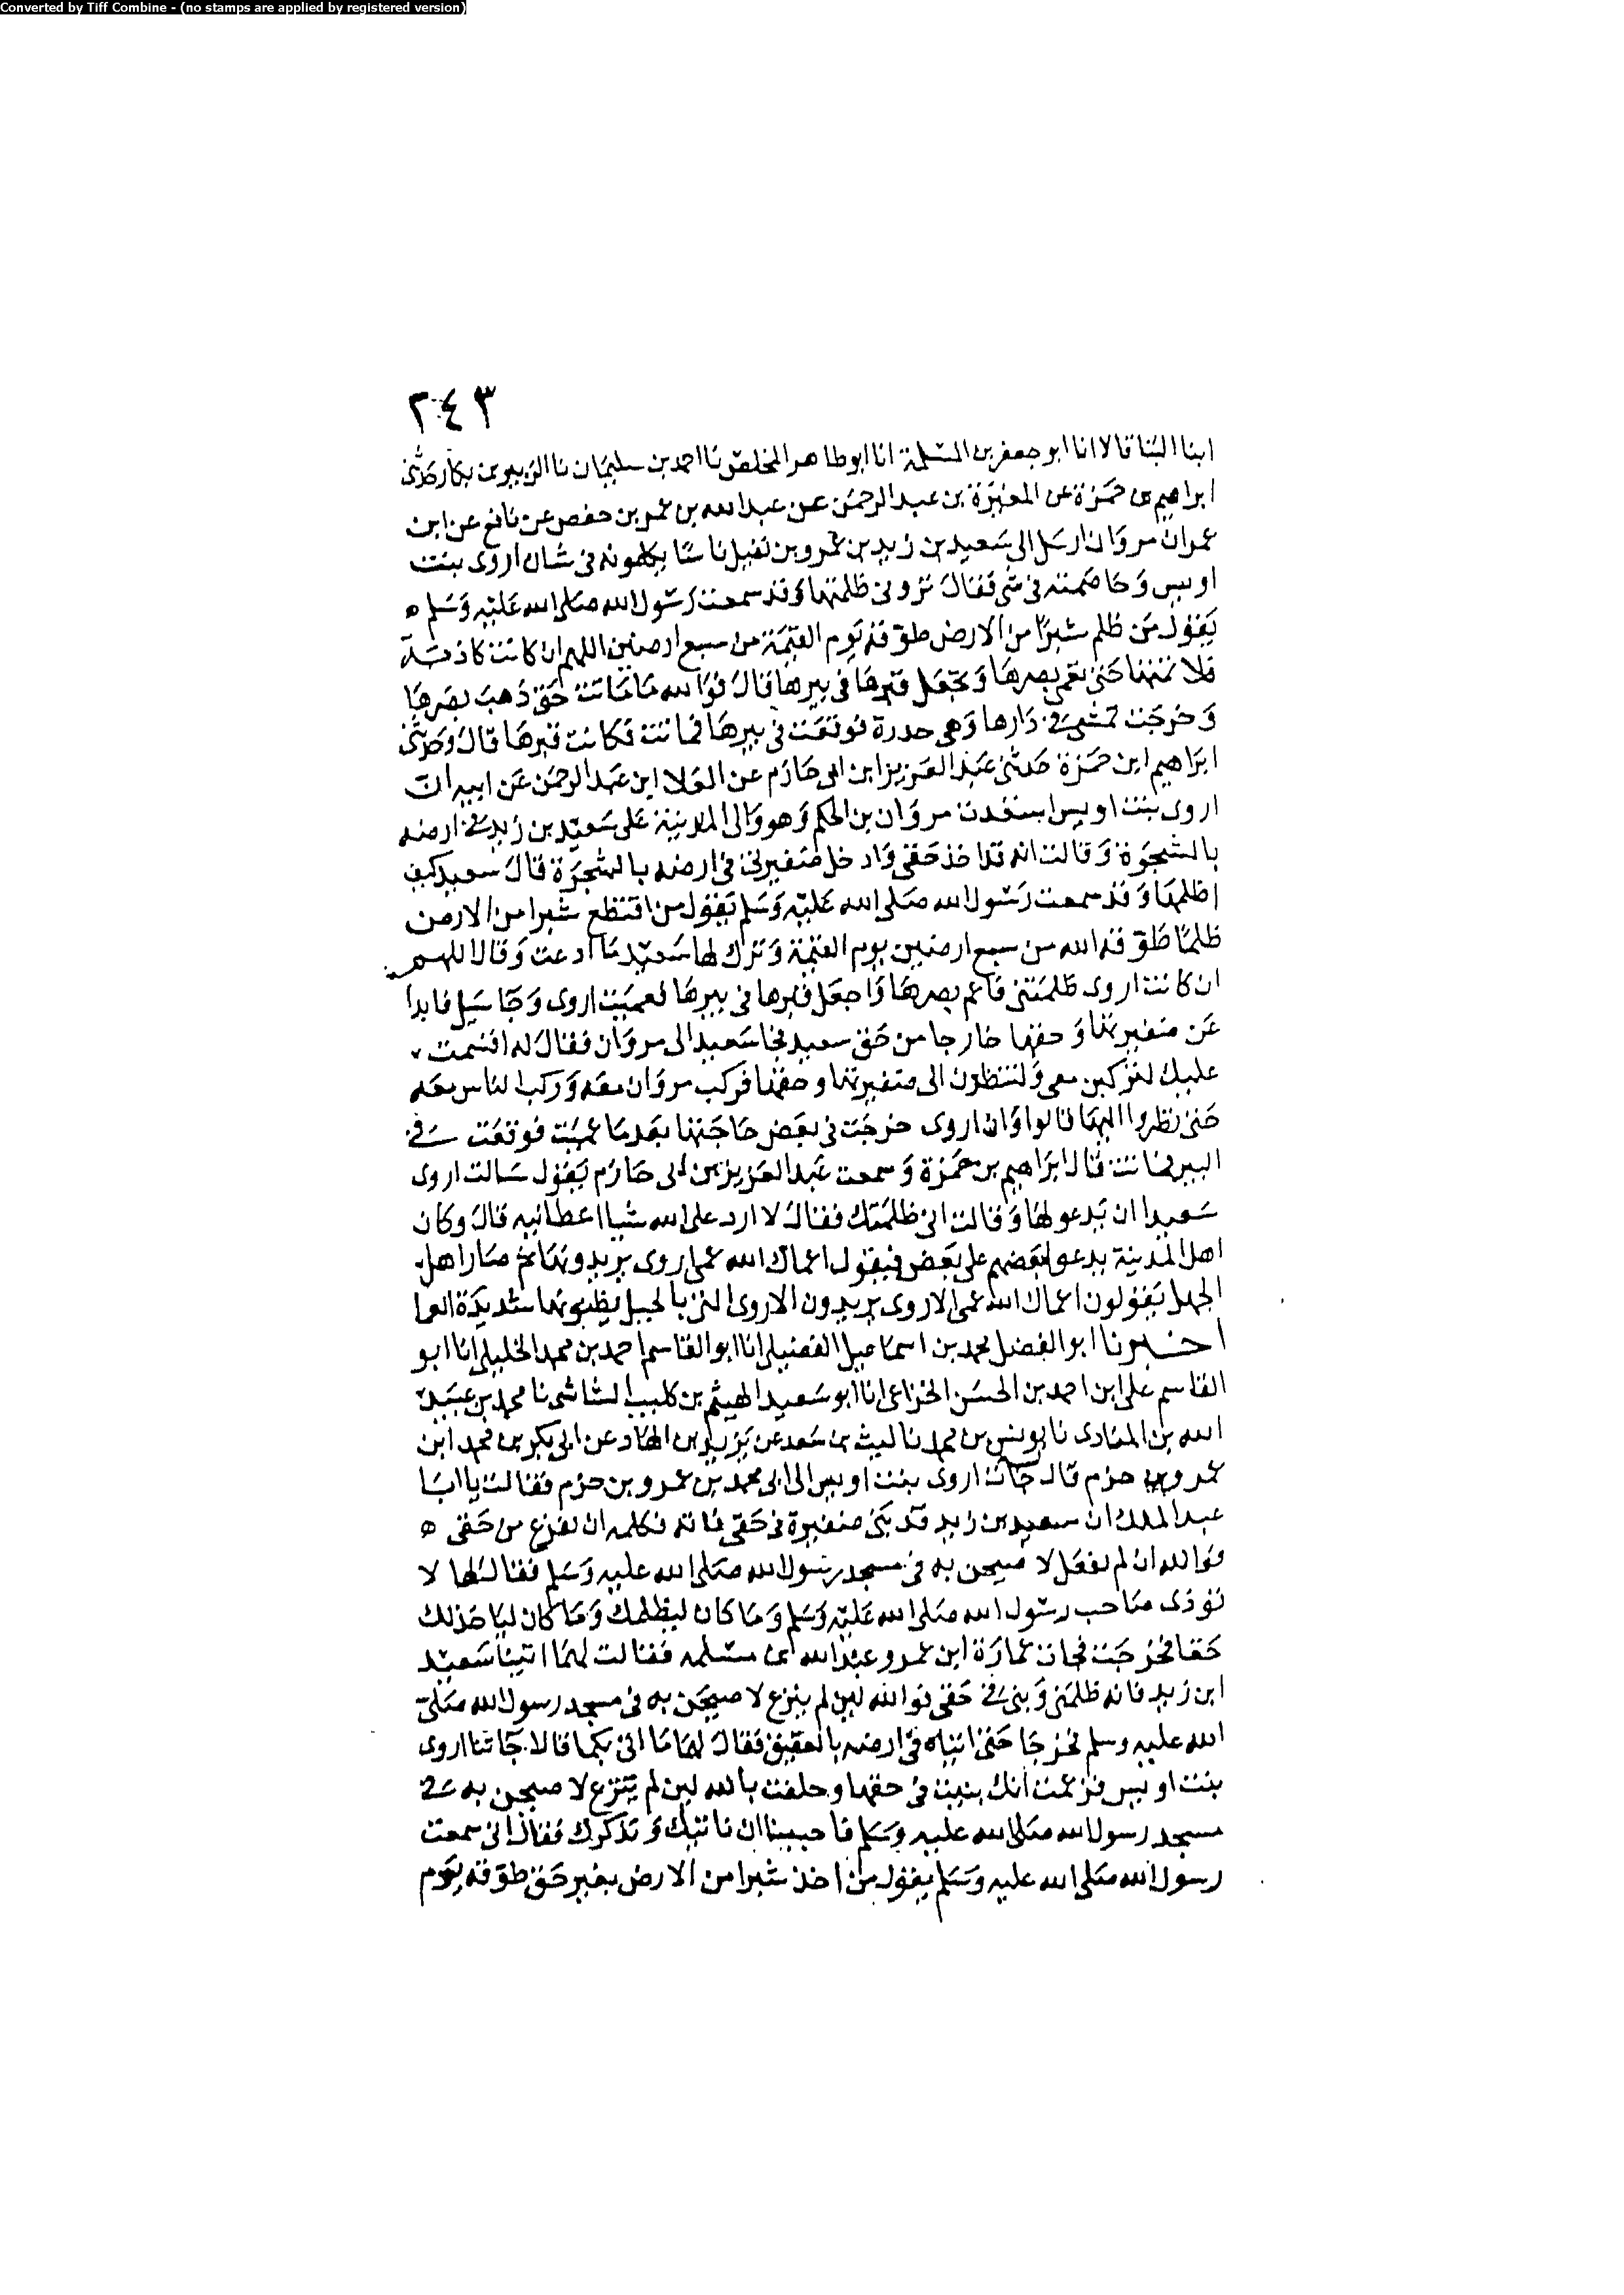 Converted by Tiff Combine - (no stamps are applied by registered version)
٢٤٣
ابنا البنا قالا انا ابو جعفر بن المسلمة انا ابو طاهر المخلص نا احمد بن سليمان نا الزبير بن بكار حدثنى
ابراهيم بن حمزة عن المغيرة بن عبد الرحمن عن عبد الله بن عمر بن حفص عن نافع عن ابن
عمر ان مروان ارسل الى سعيد بن زيد بن عمرو بن نفيل ناسا يكلمونه فى شان اروى بنت
اويس وخاصمته فى شى فقال ترونى ظلمتها وقد سمعت رسول الله صلى الله عليه وسلم ه
يقول من ظلم شبرا من الارض طوقه يوم القيمة من سبع ارضين اللهم ان كانت كاذبة
فلا تمتها حتى تعمى بصرها وتجعل قبرها فى بيرها قال فوالله ما ماتت حتى ذهب بصرها
وخرجت تمشى فى دارها وهى حدرة فوقعت فى بيرها فماتت فكانت قبرها قال وحدثنى
ابراهيم ابن حمزة حدثنى عبد العزيز ابن ابى حازم عن العلا ابن عبد الرحمن عن ابيه ان
اروى بنت اويس استعدت مروان بن الحكم وهو والى المدينة على سعيد بن زيد فى ارضه
بالشجرة وقالت انه قد اخذ حقى وادخل ضفيرتى فى ارضه بالشجرة قال سعيد كيف
اظلمها وقد سمعت رسول الله صلى الله عليه وسلم يقول من اقتطع شبرا من الارض
ظلما طوقه الله من سبع ارضين يوم القيمة وترك لها سعيد ما ادعت وقال اللهم
ان كانت اروى ظلمتنى فاعم بصرها واجعل قبرها فى بيرها فعميت اروى وجا سيل فابدا
عن ضفيرتها وحقها خارجا من حق سعيد فجا سعيد الى مروان فقال له اقسمت
عليك لتركبن معى ولتنظرن الى ضفيرتها وحقها فركب مروان معه وركب الناس معه
حتى نظروا اليها قالوا وان اروى خرجت فى بعض حاجتها بعد ما عميت فوقعت فى
البير فماتت قال ابراهيم بن حمزة وسمعت عبد العزيز بن ابى حازم يقول سالت اروى
سعيدا ان يدعو لها وقالت انى ظلمتك فقال لا ارد على الله شيا اعطانيه قال وكان
اهل المدينة يدعو بعضهم على بعض فيقول اعماك الله عمى اروى يريدونها ثم صار اهل
الجهل يقولون اعماك الله عمى الاروى يريدون الاروى التى بالجبل يظنونها شديدة العما
اخبرنا ابو الفضل محمد بن اسماعيل الفضيلى انا ابو القاسم احمد بن محمد الخليلى انا ابو
القاسم على ابن احمد بن الحسن الخزاعى انا ابو سعيد الهيثم بن كليب الشاشى نا محمد بن عبيد
الله بن المنادى نا يونس بن محمد نا ليث بن سعد عن يزيد بن الهاد عن ابى بكر بن محمد ابن
عمرو بن حزم قال جات اروى بنت اويس الى ابى محمد بن عمرو بن حزم فقالت يا ابا
عبد الملك ان سعيد بن زيد قد بنى ضفيرة فى حقى فاته فكلمه ان ينزع من حقى ه
فوالله ان لم يفعل لا صيحن به فى مسجد رسول الله صلى الله عليه وسلم فقال لها لا
توذى صاحب رسول الله صلى الله عليه وسلم وما كان ليظلمك وما كان لياخذ لك
حقا فخرجت فجات عمارة ابن عمرو وعبد الله بن مسلمه فقالت لهما اتيا سعيد
ابن زيد فانه ظلمنى وبنى فى حقى فوالله لين لم ينزع لا صيحن به فى مسجد رسول الله صلى
الله عليه وسلم فخرجا حتى اتياه فى ارضه بالعقيق فقال لهما ما اتى بكما قالا جاتنا اروى
بنت اويس فزعمت انك بنيت فى حقها وحلفت بالله لين لم ينزع لا صيحن به فى
مسجد رسول الله صلى الله عليه وسلم فاحببنا ان ناتيك ونذكرك فقال انى سمعت
رسول الله صلى الله عليه وسلم يقول من اخذ شبرا من الارض بغير حق طوقه يوم